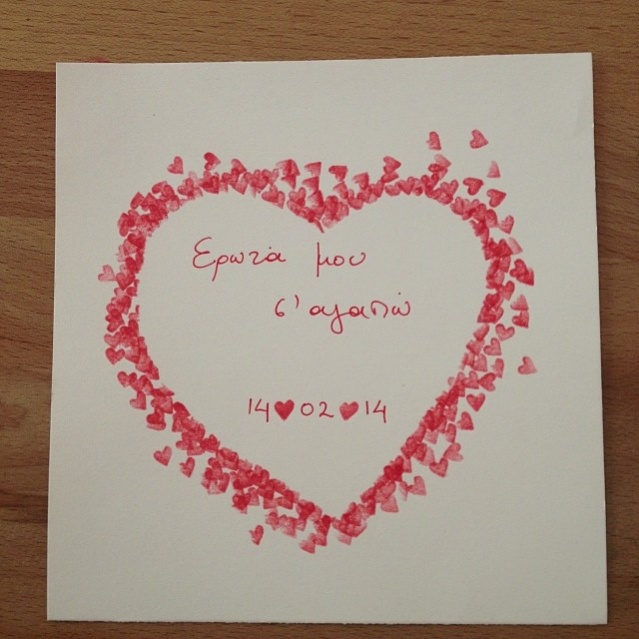 Ερωτά μου
σ' αγαπώ
14♥02♥14